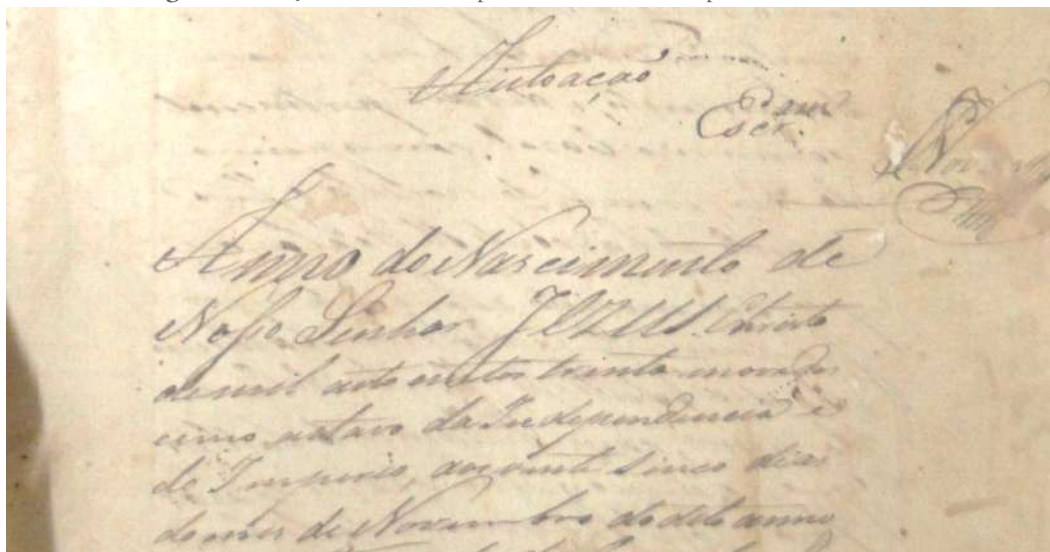 Autoação
Anno do Nascimento de
Nosso Senhor JEZUS Christo
de mil oito centos trinta e nove de
cimo oitavo da Independencia e
do Imperio, aos vinte sinco dias
do mes de Novembro do dito anno